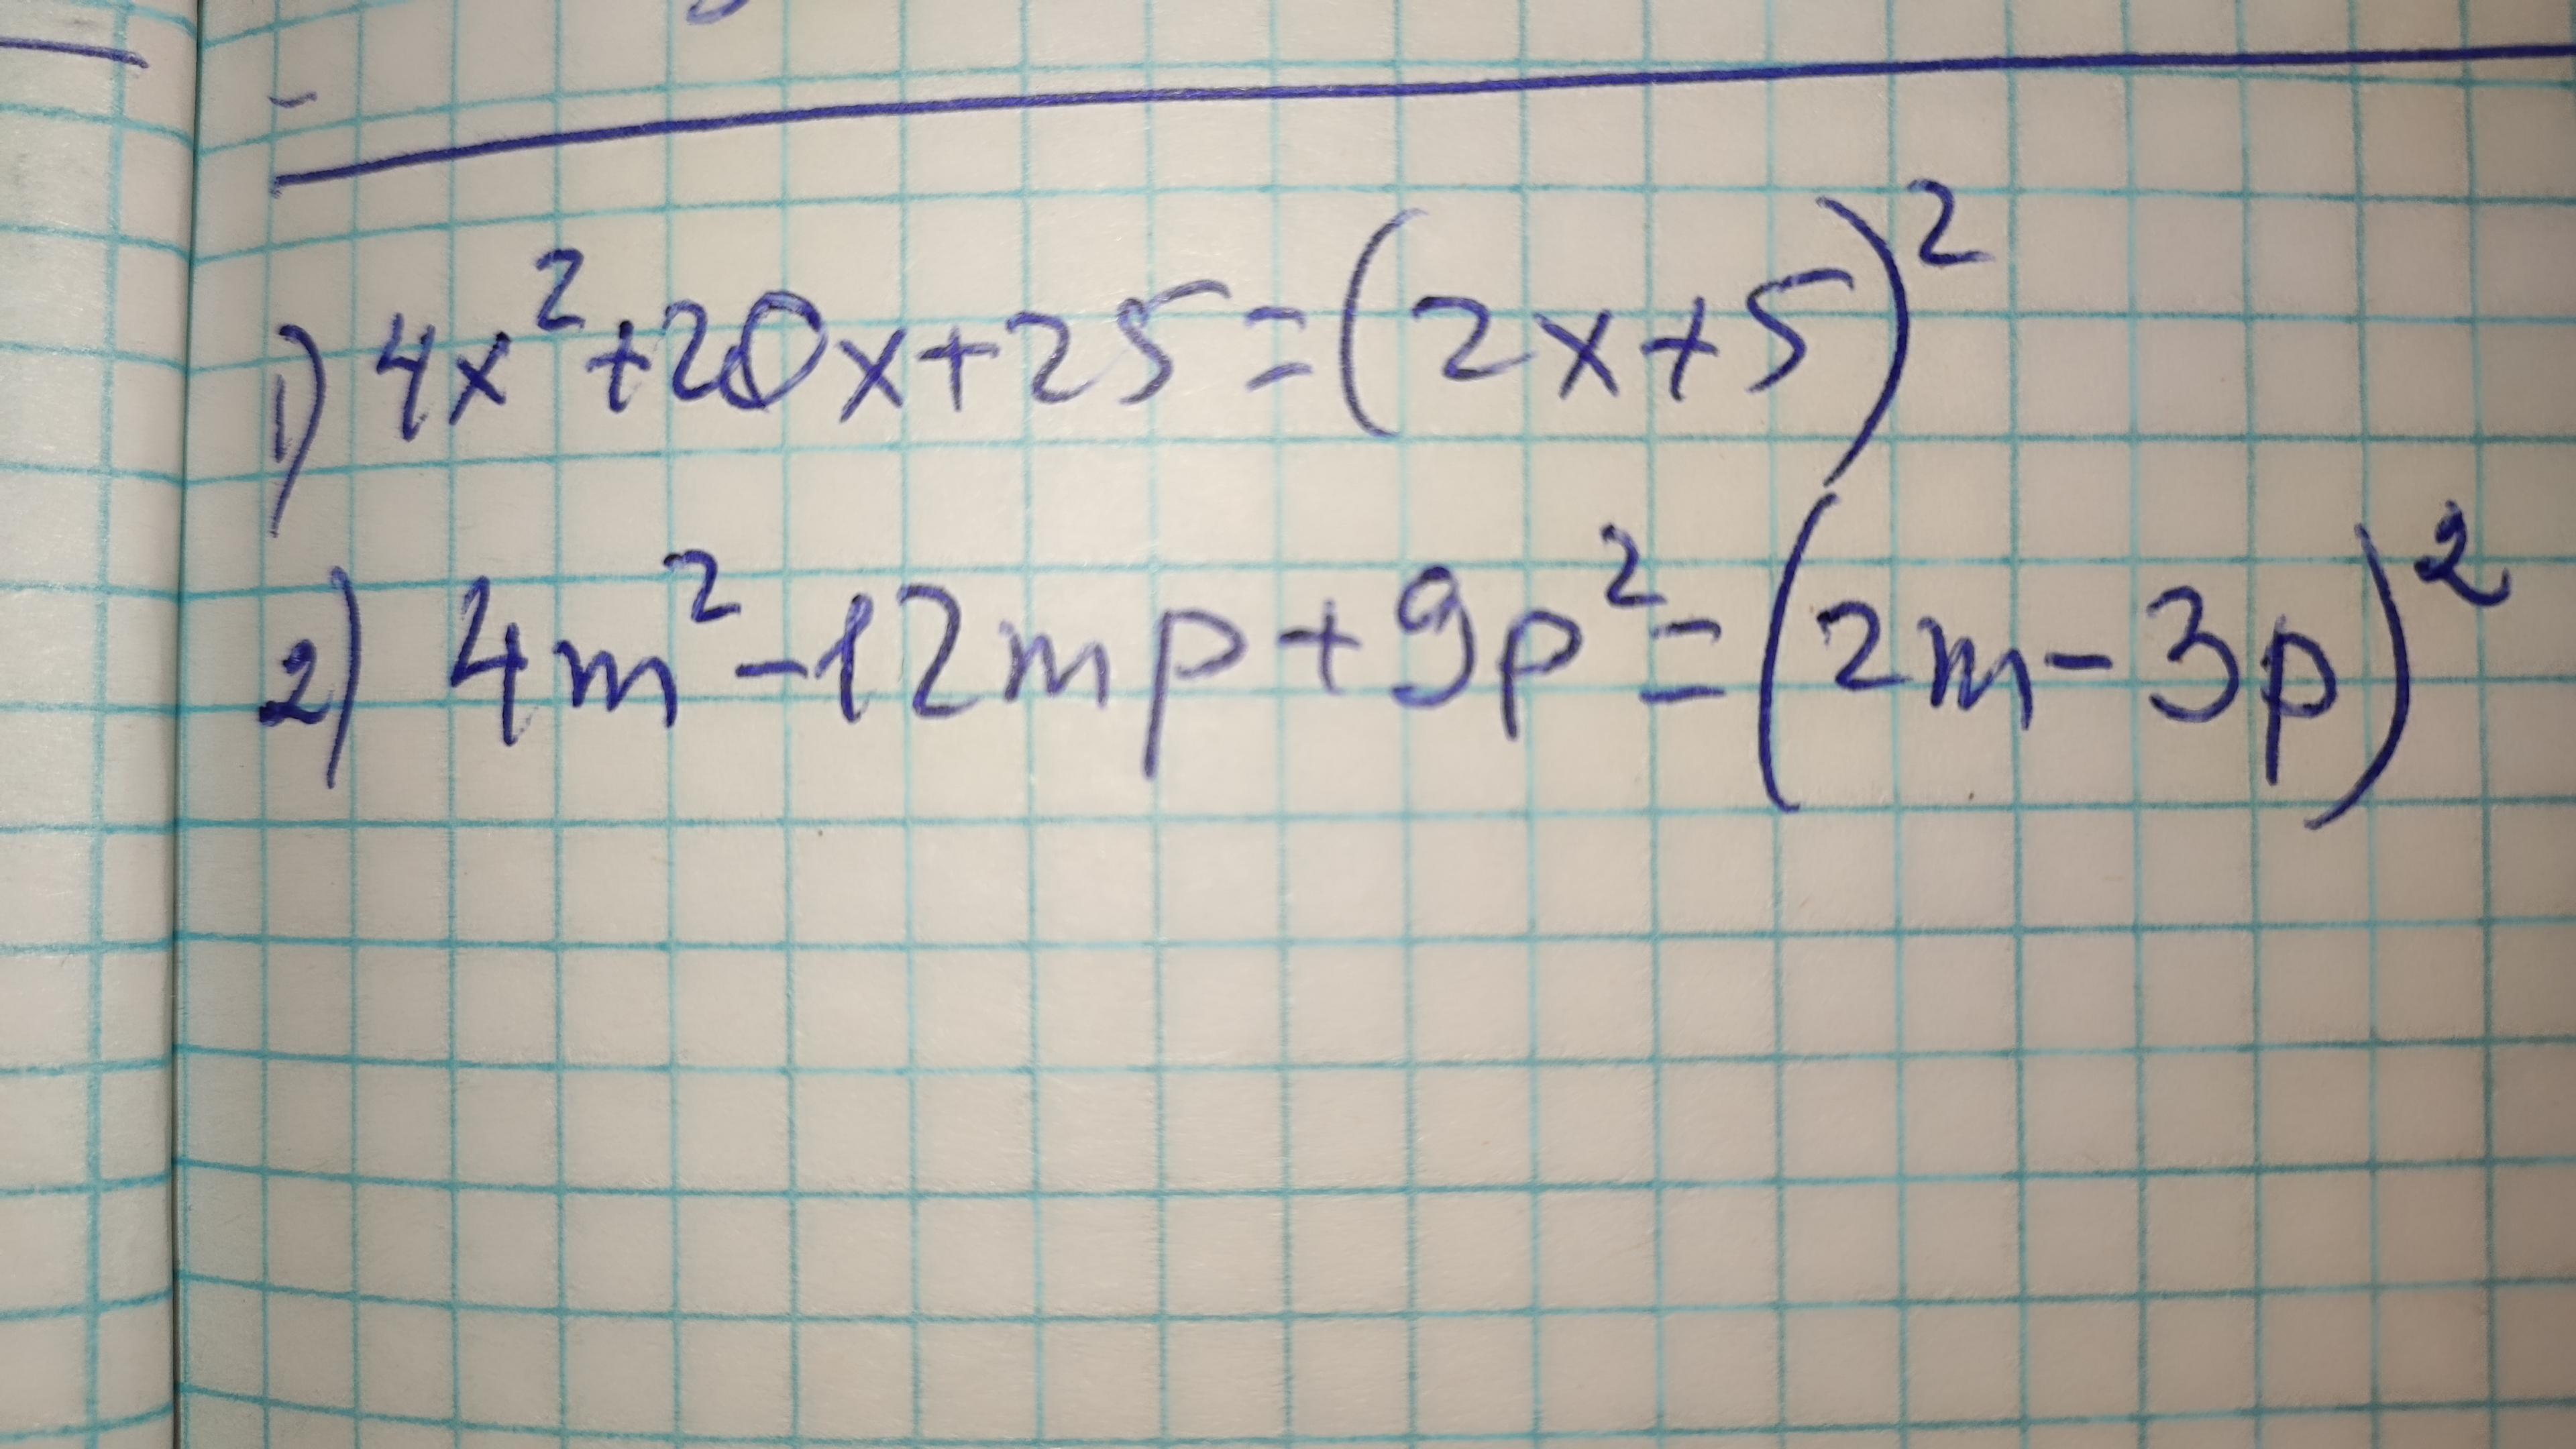 1) 4x²+20x+25=(2x+5)²
2) 4m²-12mp+9p²=(2m-3p)²